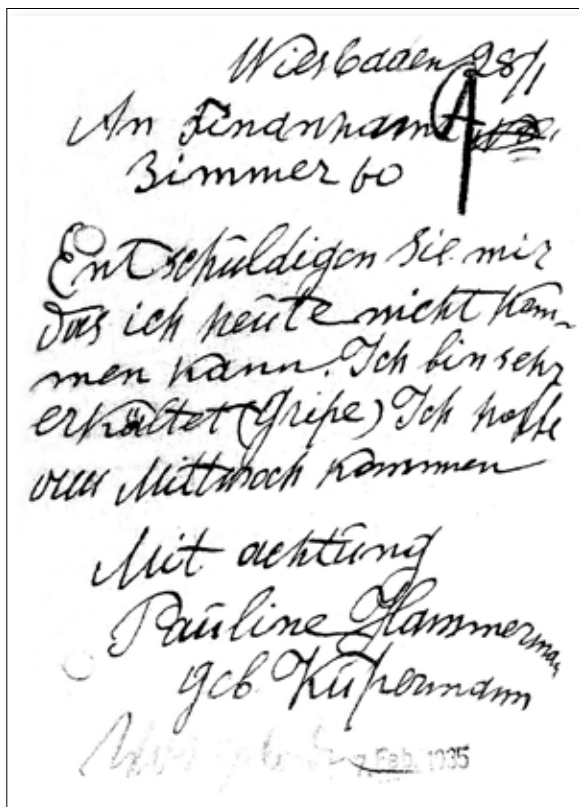 Wiesbaden 28/1
An Finanzamt
Zimmer 60
Entschuldigen Sie mir
das ich heute nicht kom-
men kann. Ich bin sehr
erkältet (Gripe) Ich hoffe
Mittwoch kommen
Mit achtung
Pauline Flammerman
geb Kupermann
7. Feb. 1935